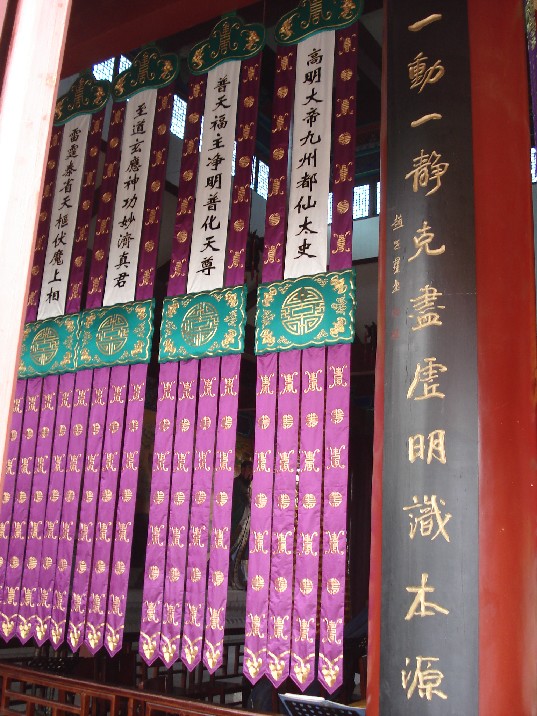 一動一靜克盡虛明識本源
高明大帝九州都仙太史
普天福主淨明普化天尊
至道玄應神功妙濟真君
雷霆泰省天樞伏魔上相